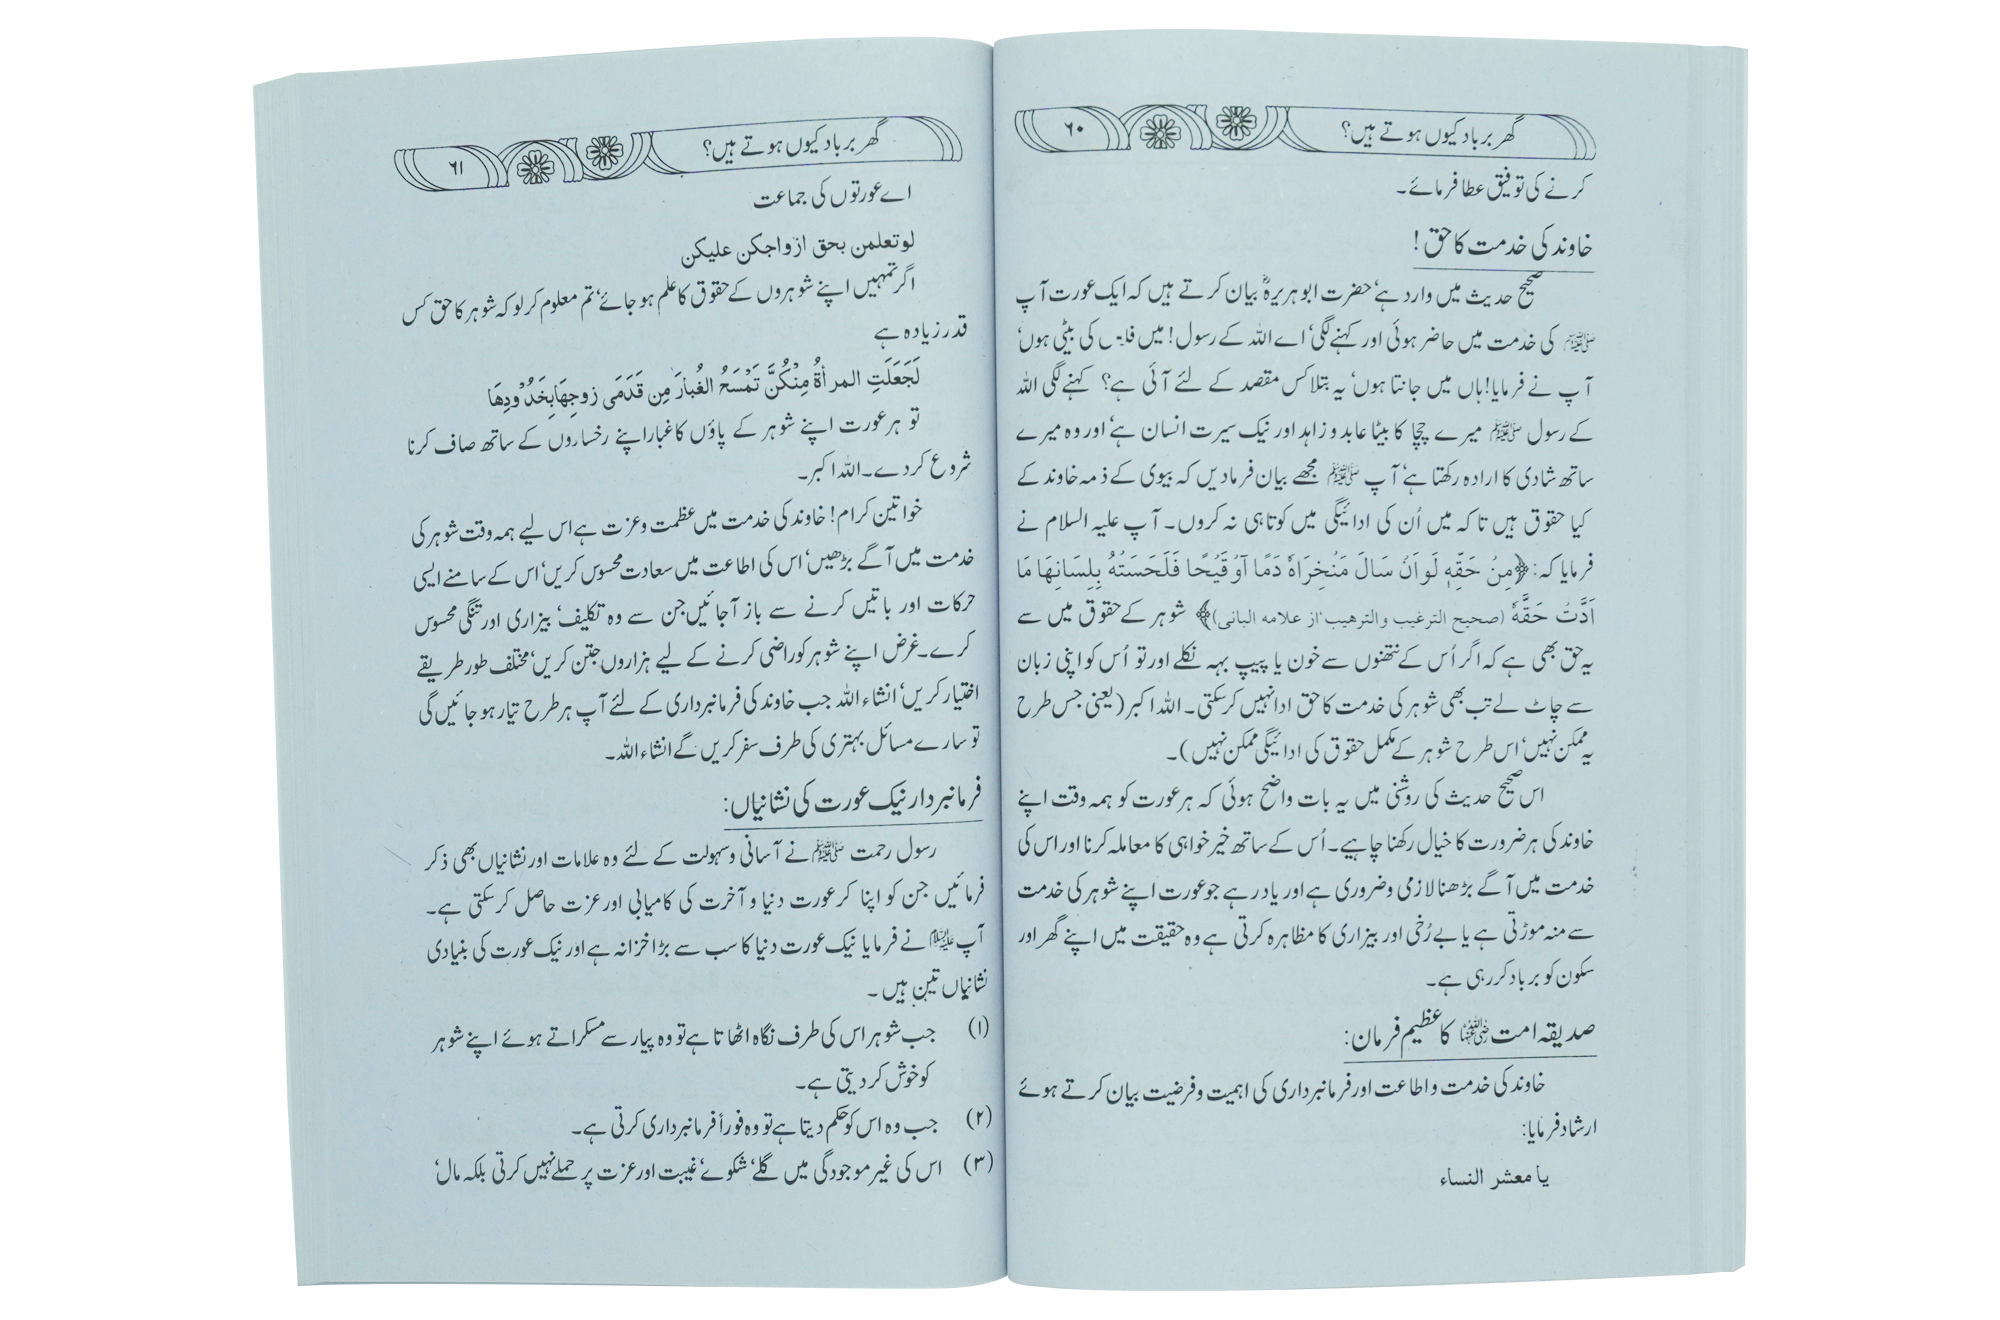 گھر برباد کیوں ہوتے ہیں؟ ۶۰
کرنے کی توفیق عطا فرمائے۔
خاوند کی خدمت کا حق!
صحیح حدیث میں وارد ہے، حضرت ابو ہریرہؓ بیان کرتے ہیں کہ ایک عورت آپ
ﷺ کی خدمت میں حاضر ہوئی اور کہنے لگی، اے اللہ کے رسول! میں فلاں کی بیٹی ہوں،
آپ نے فرمایا! ہاں میں جانتا ہوں، یہ بتلا کس مقصد کے لئے آئی ہے؟ کہنے لگی اللہ
کے رسول ﷺ میرے چچا کا بیٹا عابد و زاہد اور نیک سیرت انسان ہے، اور وہ میرے
ساتھ شادی کا ارادہ رکھتا ہے، آپ ﷺ مجھے بیان فرمادیں کہ بیوی کے ذمہ خاوند کے
کیا حقوق ہیں تاکہ میں اُن کی ادائیگی میں کوتاہی نہ کروں۔ آپ علیہ السلام نے
فرمایا کہ: ﴿مِنْ حَقِّهٖ لَوْ اَنْ سَالَ مَنْخِرَاهُ دَمًا اَوْ قَيْحًا فَلَحَسَتْهُ بِلِسَانِهَا مَا
اَدَّتْ حَقَّهٗ (صحیح الترغیب والترھیب، از علامہ البانی)﴾ شوہر کے حقوق میں سے
یہ حق بھی ہے کہ اگر اُس کے نتھنوں سے خون یا پیپ بہہ نکلے اور تو اُس کو اپنی زبان
سے چاٹ لے تب بھی شوہر کی خدمت کا حق ادا نہیں کرسکتی۔ اللہ اکبر (یعنی جس طرح
یہ ممکن نہیں، اس طرح شوہر کے مکمل حقوق کی ادائیگی ممکن نہیں)۔
اس صحیح حدیث کی روشنی میں یہ بات واضح ہوئی کہ ہر عورت کو ہمہ وقت اپنے
خاوند کی ہر ضرورت کا خیال رکھنا چاہیے۔ اُس کے ساتھ خیر خواہی کا معاملہ کرنا اور اس کی
خدمت میں آگے بڑھنا لازمی و ضروری ہے اور یاد رہے جو عورت اپنے شوہر کی خدمت
سے منہ موڑتی ہے یا بے رُخی اور بیزاری کا مظاہرہ کرتی ہے وہ حقیقت میں اپنے گھر اور
سکون کو برباد کر رہی ہے۔
صدیقہ امت رضی اللہ عنہا کا عظیم فرمان:
خاوند کی خدمت و اطاعت اور فرمانبرداری کی اہمیت و فرضیت بیان کرتے ہوئے
ارشاد فرمایا:
یا معشر النساء
گھر برباد کیوں ہوتے ہیں؟ ۶۱
اے عورتوں کی جماعت
لو تعلمن بحق ازواجکن علیکن
اگر تمہیں اپنے شوہروں کے حقوق کا علم ہو جائے، تم معلوم کر لو کہ شوہر کا حق کس
قدر زیادہ ہے
لَجَعَلَتِ المرأةُ مِنْكُنَّ تَمْسَحُ الغُبارَ مِن قَدَمَى زوجِهَا بِخَدُوْدِهَا
تو ہر عورت اپنے شوہر کے پاؤں کا غبار اپنے رخساروں کے ساتھ صاف کرنا
شروع کردے۔ اللہ اکبر۔
خواتین کرام! خاوند کی خدمت میں عظمت و عزت ہے اس لیے ہمہ وقت شوہر کی
خدمت میں آگے بڑھیں، اس کی اطاعت میں سعادت محسوس کریں، اس کے سامنے ایسی
حرکات اور باتیں کرنے سے باز آجائیں جن سے وہ تکلیف، بیزاری اور تنگی محسوس
کرے۔ غرض اپنے شوہر کو راضی کرنے کے لیے ہزاروں جتن کریں، مختلف طور طریقے
اختیار کریں، انشاء اللہ جب خاوند کی فرمانبرداری کے لئے آپ ہر طرح تیار ہو جائیں گی
تو سارے مسائل بہتری کی طرف سفر کریں گے انشاء اللہ۔
فرمانبردار نیک عورت کی نشانیاں:
رسول رحمت ﷺ نے آسانی و سہولت کے لئے وہ علامات اور نشانیاں بھی ذکر
فرمائیں جن کو اپنا کر عورت دنیا و آخرت کی کامیابی اور عزت حاصل کرسکتی ہے۔
آپ علیہ السلام نے فرمایا نیک عورت دنیا کا سب سے بڑا خزانہ ہے اور نیک عورت کی بنیادی
نشانیاں تین ہیں۔
(۱) جب شوہر اس کی طرف نگاہ اٹھاتا ہے تو وہ پیار سے مسکراتے ہوئے اپنے شوہر
کو خوش کر دیتی ہے۔
(۲) جب وہ اس کو حکم دیتا ہے تو وہ فوراً فرمانبرداری کرتی ہے۔
(۳) اس کی غیر موجودگی میں گلے، شکوے، غیبت اور عزت پر حملے نہیں کرتی بلکہ مال،